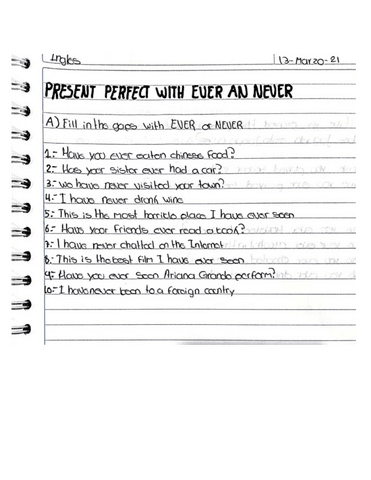 Ingles 13-Marzo-21
PRESENT PERFECT WITH EVER AN NEVER
A) Fill in the gaps with EVER or NEVER
1.- Have you ever eaten chinese food?
2.- Has your sister ever had a car?
3.- we have never visited your town?
4.- I have never drank wine
5.- This is the most horrible place I have ever seen
6.- Have your friends ever read a book?
7.- I have never chatted on the Internet
8.- This is the best film I have ever seen
9.- Have you ever seen Ariana Grande perform?
10.- I have never been to a foreign country